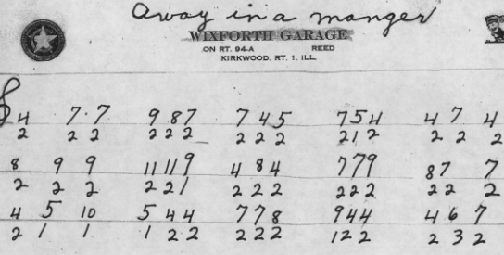 away in a manger
WIXFORTH GARAGE
ON RT. 94-A REED
KIRKWOOD, RT. 1. ILL.
4 7 7 9 8 7 7 4 5 7 5 4 4 7 4
2 2 2 2 2 2 2 2 2 2 1 2 2 2 2
8 9 9 11 11 9 4 8 4 7 7 9 8 7 7
2 2 2 2 2 1 2 2 2 2 2 2 2 2 2
4 5 10 5 4 4 7 7 8 9 4 4 4 6 7
2 1 1 1 2 2 2 2 2 1 2 2 2 3 2